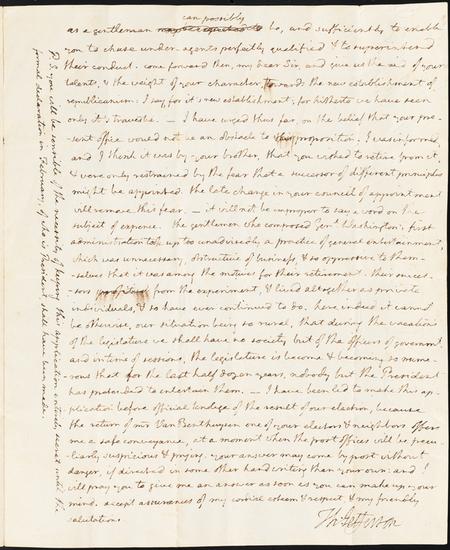 can possibly
as a gentleman be, and sufficiently to enable
you to chuse under-agents perfectly qualified & to superintend
their conduct. come forward then, my dear Sir, and give us the aid of your
talents, & the weight of your character towards the new establishment of
republicanism: I say for it's new establishment; for hitherto we have seen
only it's travestie. — I have urged thus far, on the belief that your pre-
sent office would not be an obstacle to this proposition. I was informed,
and I think it was by your brother, that you wished to retire from it,
& were only restrained by the fear that a successor of different principles
might be appointed. the late change in your council of appointment
will remove this fear. — it will not be improper to say a word on the
subject of expence. the gentlemen who composed Genl. Washington's first
administration took up too universally a practice of general entertainment,
which was unnecessary, obstructive of business, & so oppressive to them-
selves that it was among the motives for their retirement. their succes-
sors profited from the experiment, & lived altogether as private
individuals, & so have ever continued to do. here indeed it cannot
be otherwise, our situation being so rural, that during the vacations
of the legislature we shall have no society but of the officers of government,
and in time of sessions, the legislature is become & becoming so nume-
rous that for the last half dozen years, nobody but the President
has pretended to entertain them. — I have been led to make this ap-
plication before official knolege of the result of our election, because
the return of mr Van Benthuysen one of your electors & neighbors offers
me a safe conveyance, at a moment when the post offices will be pecu-
liarly suspicious & prying. your answer may come by post without
danger, if directed in some other handwriting than your own: and I
will pray you to give me an answer as soon as you can make up your
mind. accept assurances of my cordial esteem & respect & my friendly
salutations.
Th: Jefferson
P.S. you will be sensible of the necessity of keeping this application entirely secret until the
formal declaration in February, of who is President, shall have been made.